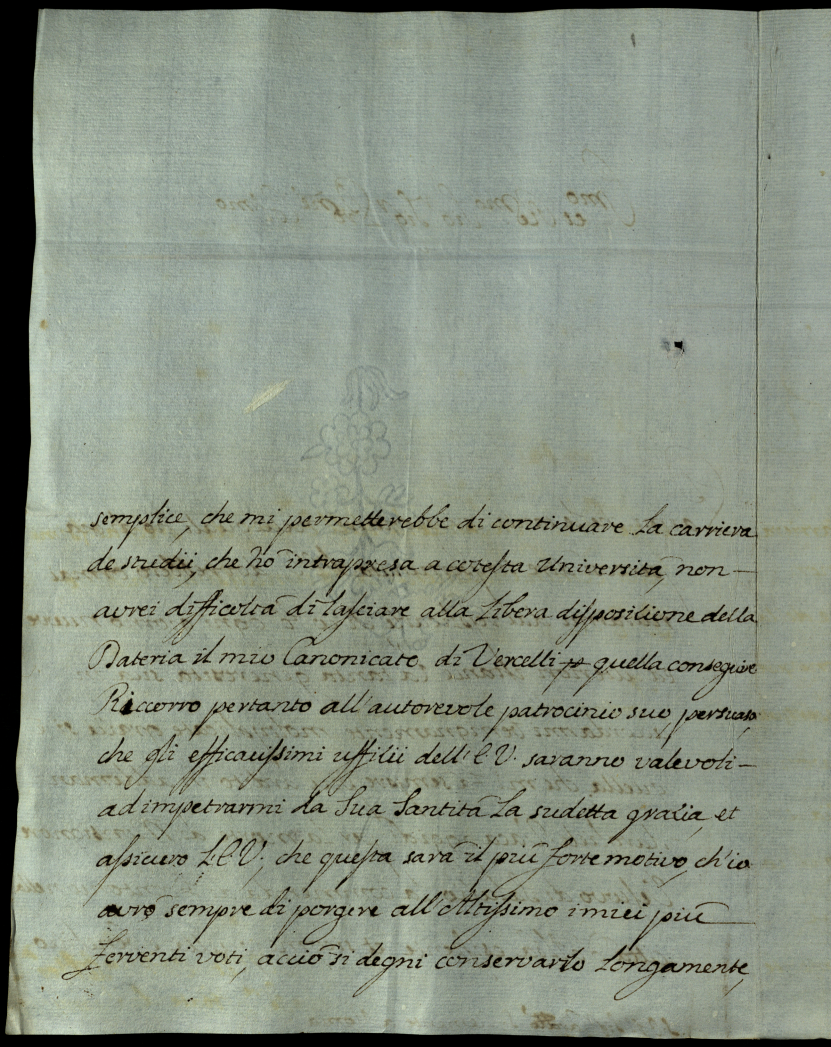 semplice, che mi permetterebbe di continuare la carriera
de studii, che hò intrapresa a cotesta Università, non
avrei difficoltà di lasciare alla libera dispositione della
Dateria il mio Canonicato di Vercelli p quella conseguire
Riccorro pertanto all'autorevole patrocinio suo persuaso,
che gli efficacissimi uffitii dell'E.V. saranno valevoli
ad impetrarmi da Sua Santità la sudetta grazia, et
assicuro L'E.V., che questa sarà il più forte motivo, ch'io
avrò sempre di porgere all'Altissimo i miei più
ferventi voti, acciò si degni conservarlo longamente,